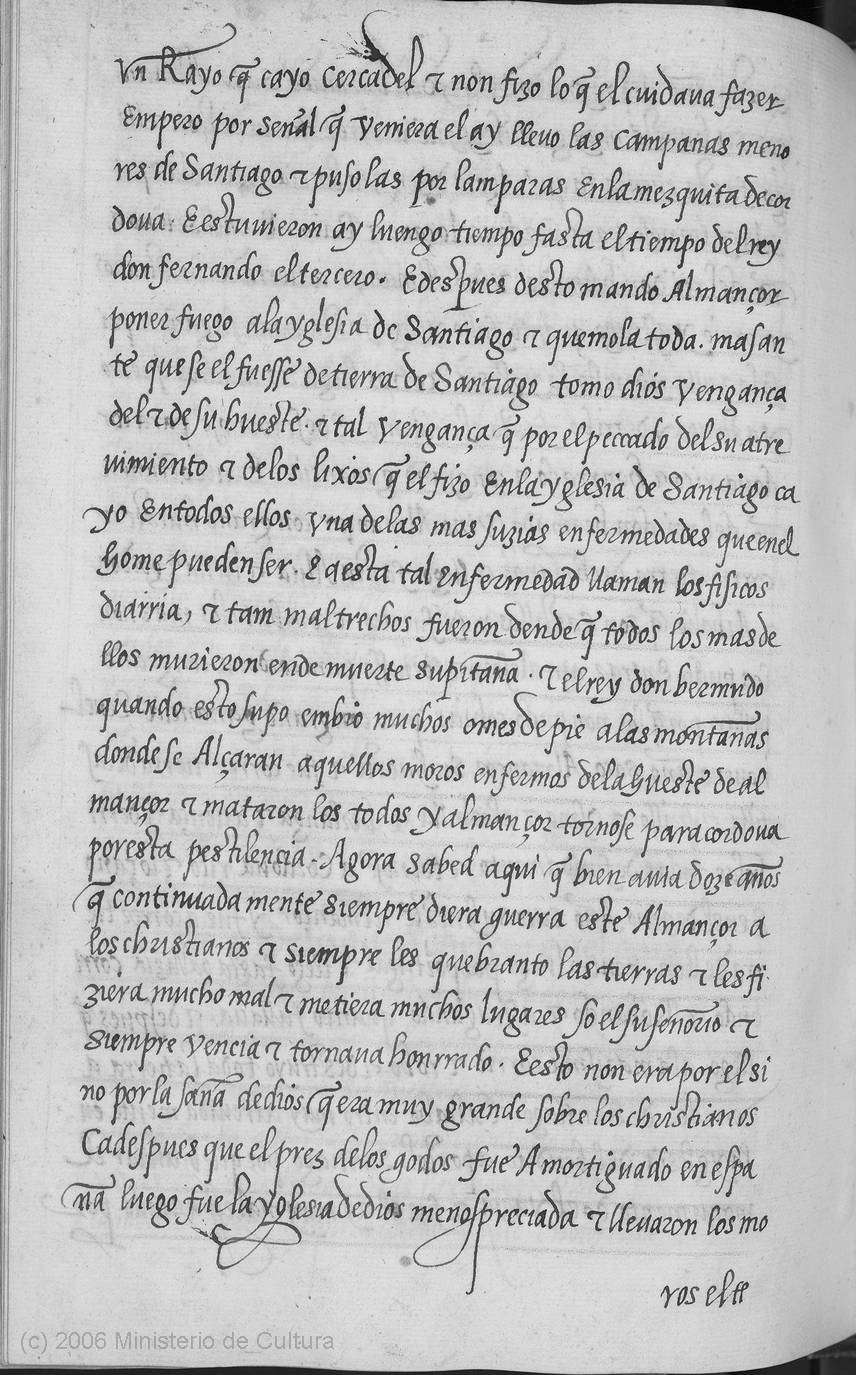 vn Rayo q̃ cayo cerca del τ non fizo lo q̃ el cuidaua fazer
Empero por señal q̃ veniera el ay lleuo las campanas meno
res de Santiago τ puso las por lamparas en la mezquita de cor
doua. E estuuieron ay luengo tiempo fasta el tiempo del rey
don fernando el tercero. E despues desto mando Almançor
poner fuego a la yglesia de Santiago τ quemola toda. mas an
te que se el fuesse de tierra de Santiago tomo dios vengança
del τ de su hueste. τ tal vengança q̃ por el peccado del su atre
uimiento τ de los lixos q̃ el fizo en la yglesia de Santiago ca
yo en todos ellos vna de las mas suzias enfermedades que en el
home pueden ser. E a esta tal enfermedad llaman los fisicos
diarria, τ tam maltrechos fueron dende q̃ todos los mas de
llos murieron ende muerte supitaña. τ el rey don bermudo
quando esto supo embio muchos omes de pie a las montañas
donde se Alçaran aquellos moros enfermos de la hueste de al
mançor τ mataron los todos y almançor tornose para cordoua
por esta pestilencia. Agora sabed aqui q̃ bien auia doze años
q̃ continuadamente siempre diera guerra este Almançor a
los christianos τ siempre les quebranto las tierras τ les fi
ziera mucho mal τ metiera muchos lugares so el su señorio τ
siempre vencia τ tornaua honrrado. E esto non era por el si
no por la saña de dios q̃ era muy grande sobre los christianos
Ca despues que el prez de los godos fue Amortiguado en espa
ña luego fue la yglesia de dios menospreciada τ lleuaron los mo
ros el tt
(c) 2006 Ministerio de Cultura